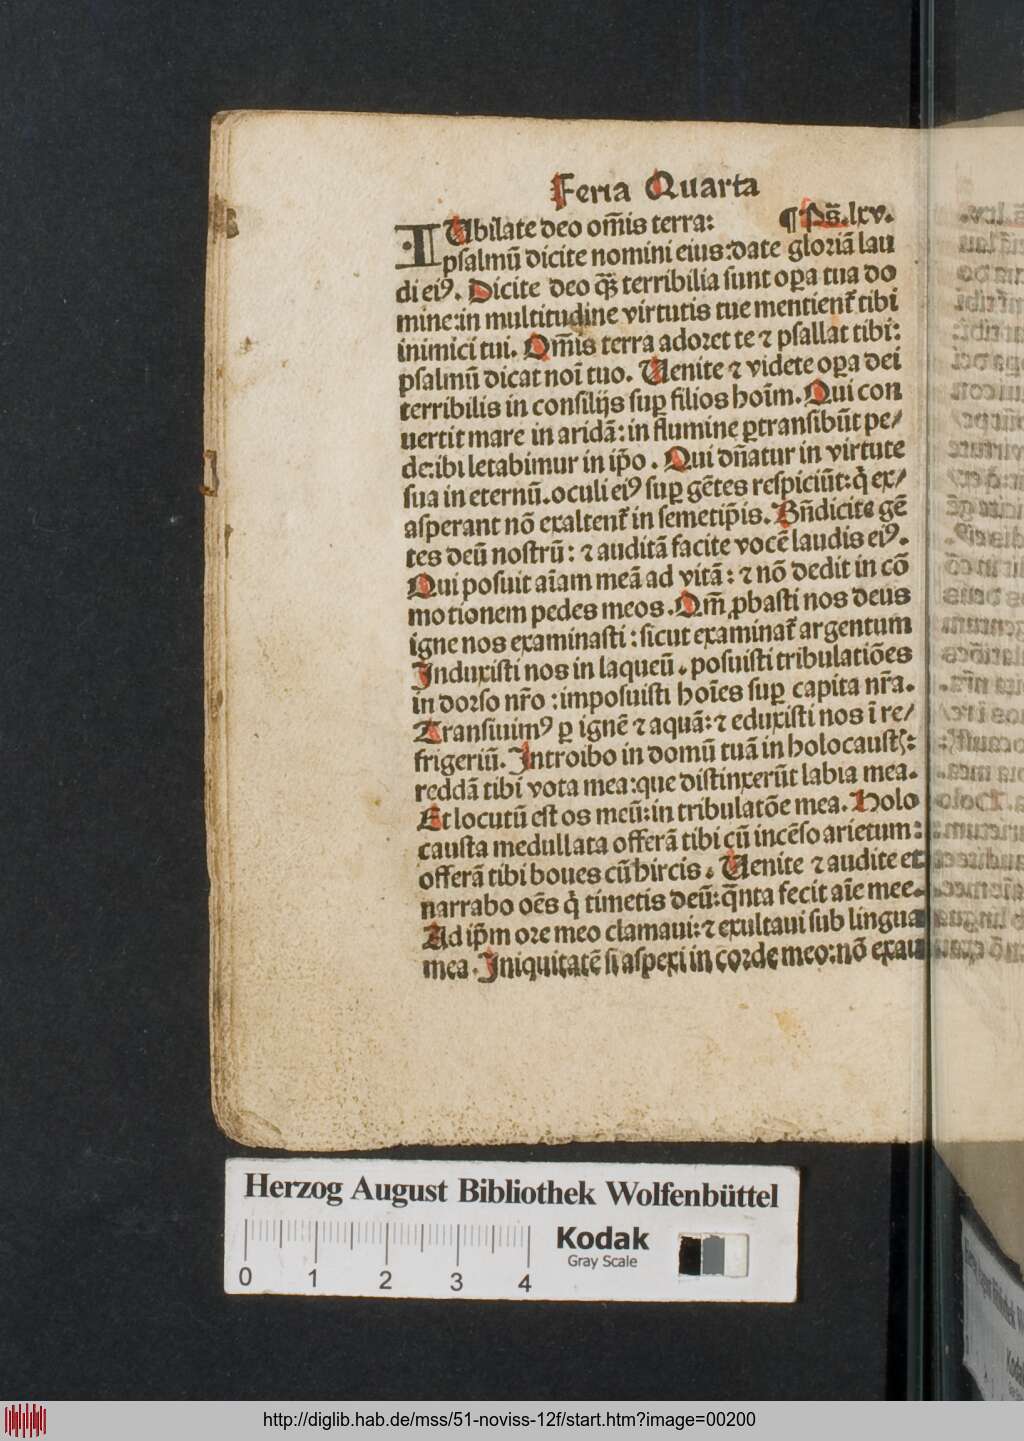 Feria Quarta
IUbilate deo om̄is terra: ¶ Ps̄.lxv.
psalmū dicite nomini eius:date gloriā lau
di eiꝰ. Dicite deo q̄ꝫ terribilia sunt oꝑa tua do
mine:in multitudine virtutis tue mentient᷑ tibi
inimici tui. Om̄is terra adoret te ⁊ psallat tibi:
psalmū dicat noī tuo. Uenite ⁊ videte oꝑa dei
terribilis in consilijs suꝑ filios hoīm. Qui con
uertit mare in aridā: in flumine ꝑtransibūt pe/
de:ibi letabimur in ip̄o. Qui dn̄atur in virtute
sua in eternū.oculi eiꝰ suꝑ gētes respiciūt:q̇ ex/
asperant nō exaltent᷑ in semetip̄is. Bn̄dicite gē
tes deū nostrū: ⁊ auditā facite vocē laudis eiꝰ.
Qui posuit aīam meā ad vitā: ⁊ nō dedit in cō
motionem pedes meos. Qm̄ ꝓbasti nos deus
igne nos examinasti: sicut examinat᷑ argentum
Induxisti nos in laqueū. posuisti tribulatiōes
in dorso nr̄o: imposuisti hoīes suꝑ capita nr̄a.
Transiuimꝰ ꝑ ignē ⁊ aquā: ⁊ eduxisti nos ī re/
frigeriū. Introibo in domū tuā in holocaustꝭ:
reddā tibi vota mea:que distinxerūt labia mea.
Et locutū est os meū:in tribulatōe mea. Holo
causta medullata offerā tibi cū incēso arietum:
offerā tibi boues cū hircis. Uenite ⁊ audite et
narrabo oēs q̇ timetis deū:q̄nta fecit aīe mee.
Ad ip̄m ore meo clamaui:⁊ exultaui sub lingua
mea. Iniquitatē si aspexi in corde meo:nō exau
Herzog August Bibliothek Wolfenbüttel
0 1 2 3 4
Kodak
Gray Scale
http://diglib.hab.de/mss/51-noviss-12f/start.htm?image=00200